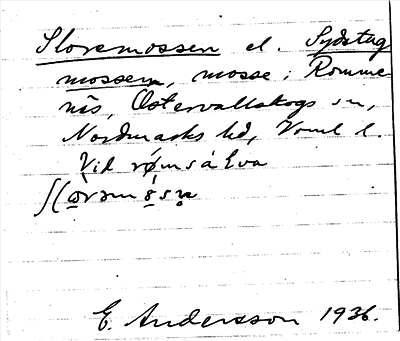 Slorsmossen el. Sydstug
mossen, mosse i Romme
näs, Östervallskogs sn,
Nordmarks hd, Vrml l.
Vid
E. Andersson 1936.